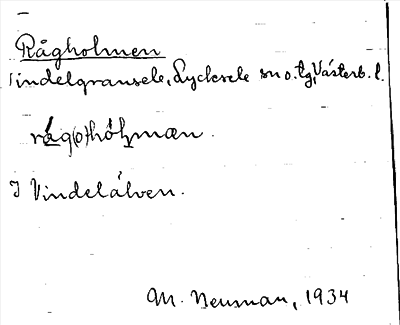 Rågholmen
Vindelgransele, Lycksele sn o. tg, Västerb. l.
råg(o)hòɫmæn.
I Vindelälven.
M. Neuman, 1934